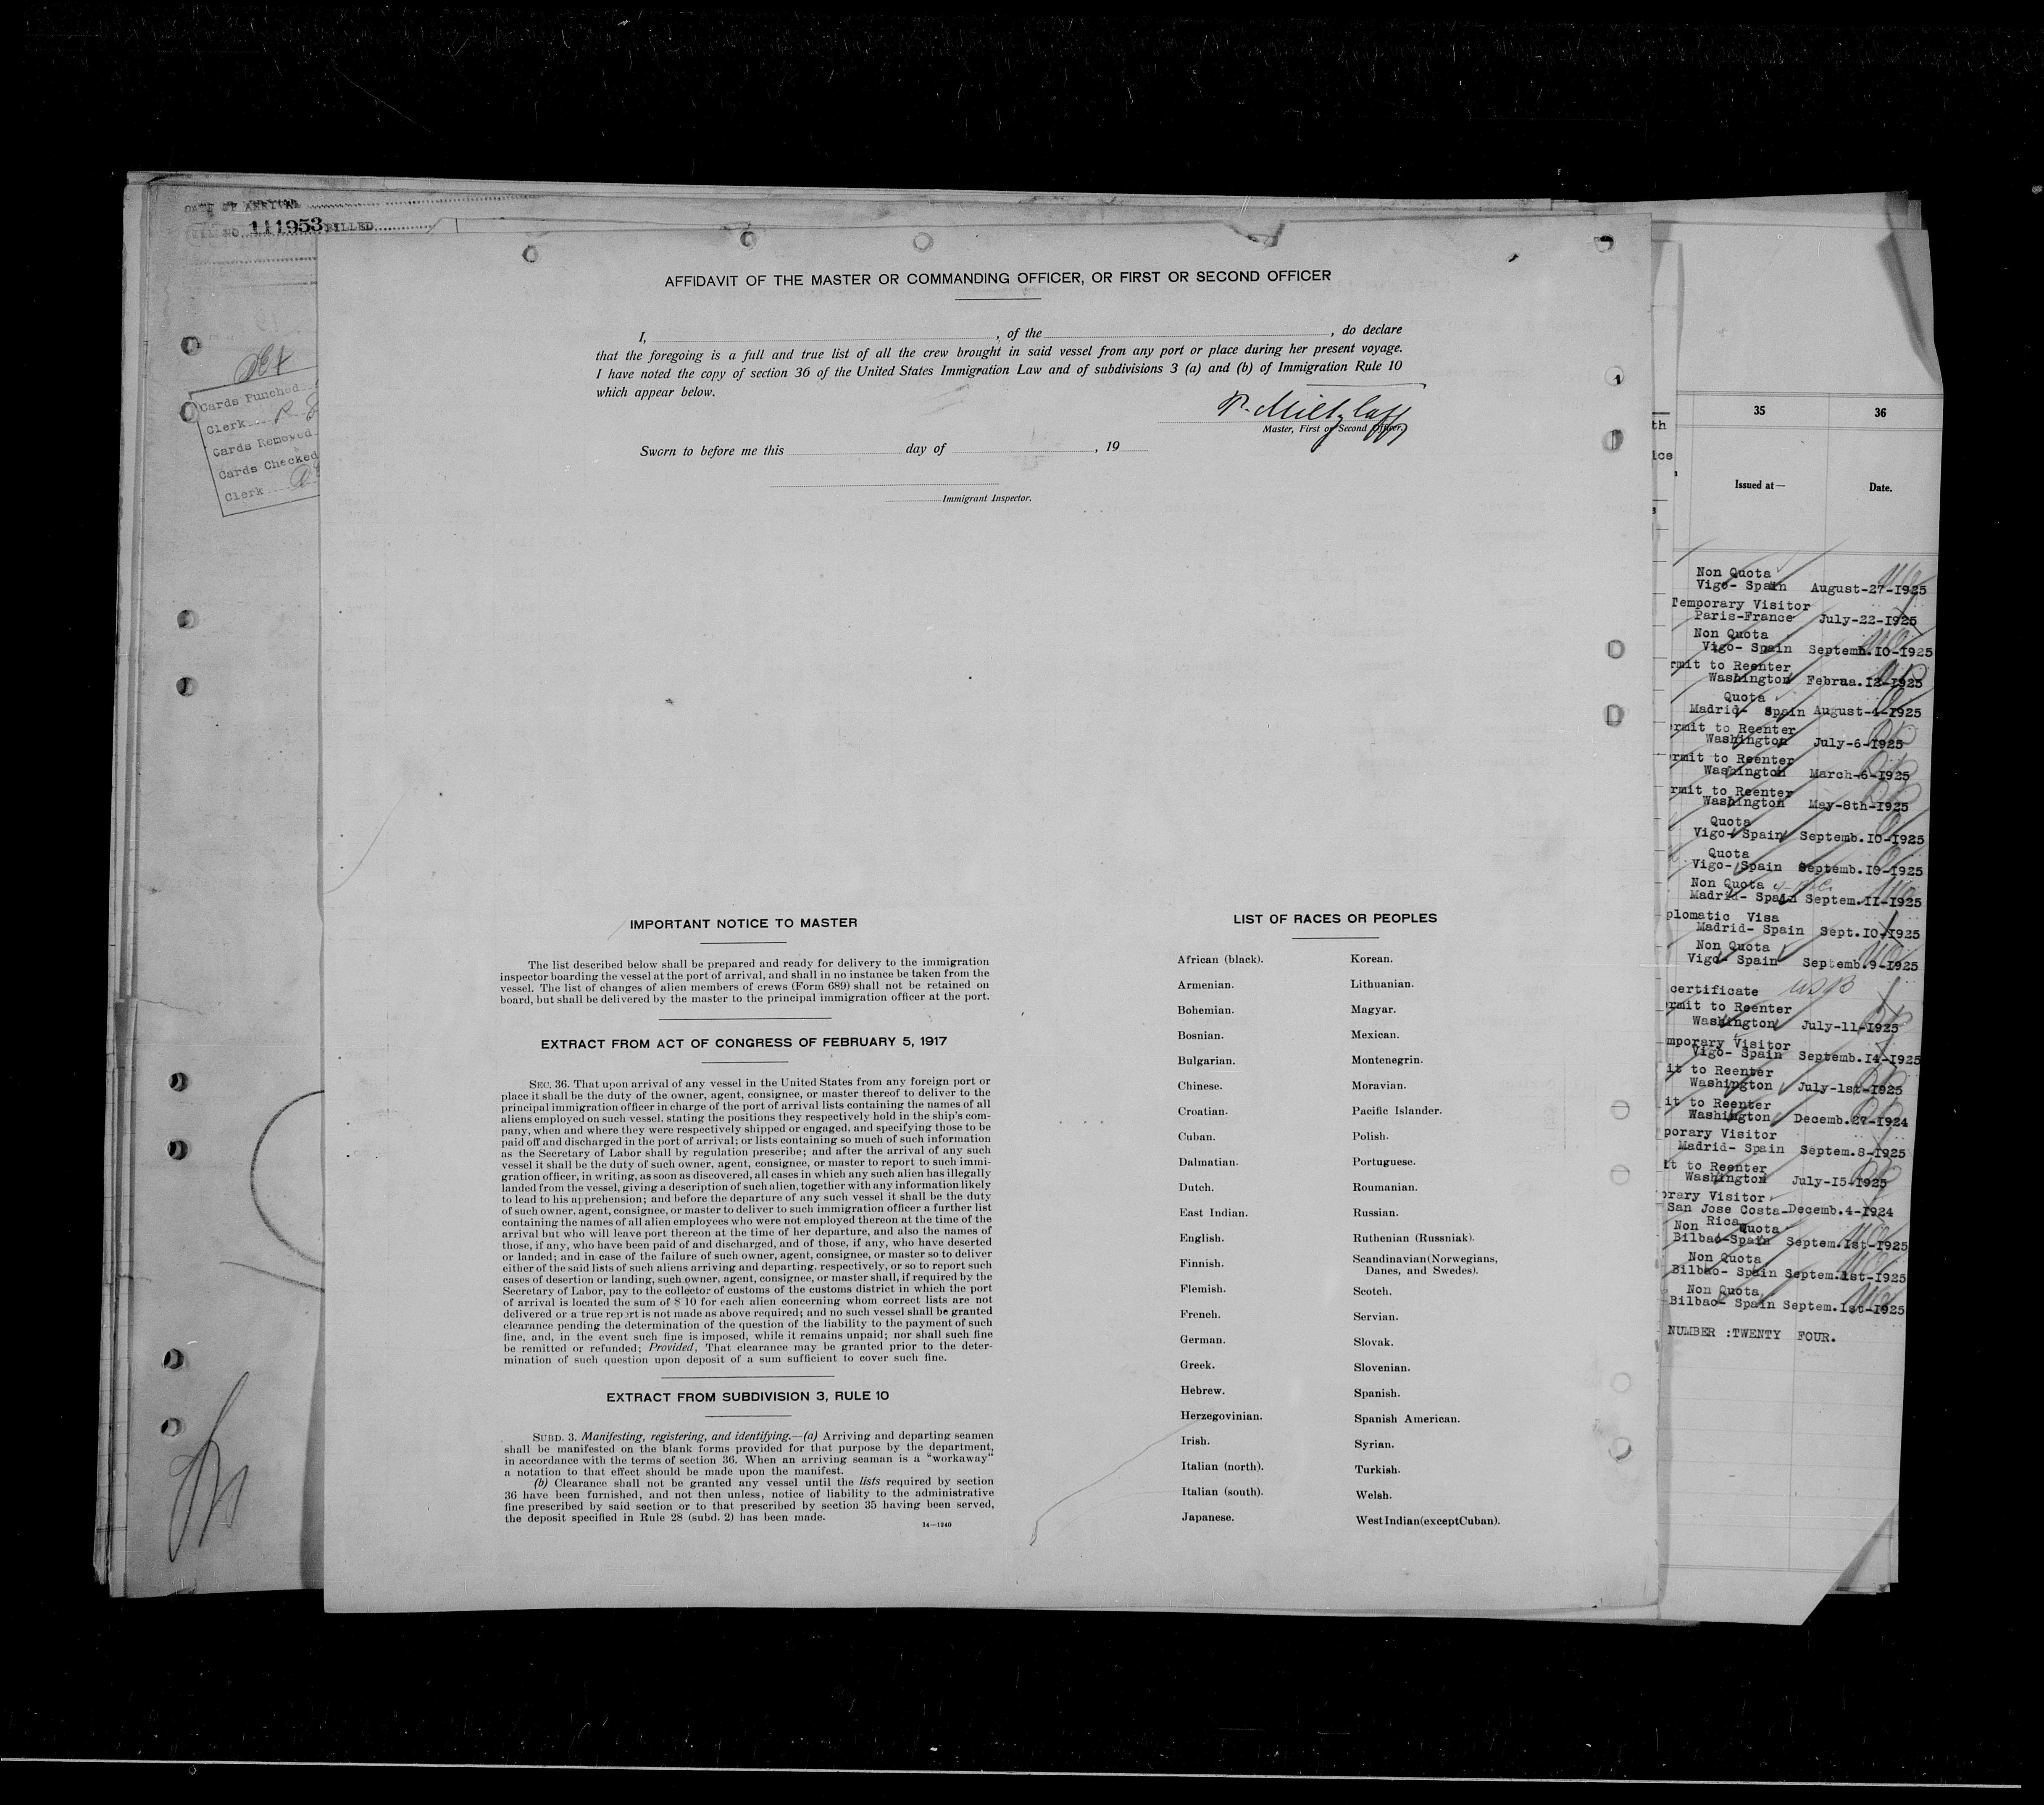 DATE OF ARRIVAL
NO. 111953 BILLED
Cards Punched
Clerk
Cards Removed
Cards Checked
Clerk
AFFIDAVIT OF THE MASTER OR COMMANDING OFFICER, OR FIRST OR SECOND OFFICER
I, , of the , do declare
that the foregoing is a full and true list of all the crew brought in said vessel from any port or place during her present voyage.
I have noted the copy of section 36 of the United States Immigration Law and of subdivisions 3 (a) and (b) of Immigration Rule 10
which appear below.
P. Mietzlaff
Master, First or Second Officer.
Sworn to before me this day of , 19
Immigrant Inspector.
IMPORTANT NOTICE TO MASTER
The list described below shall be prepared and ready for delivery to the immigration
inspector boarding the vessel at the port of arrival, and shall in no instance be taken from the
vessel. The list of changes of alien members of crews (Form 689) shall not be retained on
board, but shall be delivered by the master to the principal immigration officer at the port.
EXTRACT FROM ACT OF CONGRESS OF FEBRUARY 5, 1917
SEC. 36. That upon arrival of any vessel in the United States from any foreign port or
place it shall be the duty of the owner, agent, consignee, or master thereof to deliver to the
principal immigration officer in charge of the port of arrival lists containing the names of all
aliens employed on such vessel, stating the positions they respectively hold in the ship's com-
pany, when and where they were respectively shipped or engaged, and specifying those to be
paid off and discharged in the port of arrival; or lists containing so much of such information
as the Secretary of Labor shall by regulation prescribe; and after the arrival of any such
vessel it shall be the duty of such owner, agent, consignee, or master to report to such immi-
gration officer, in writing, as soon as discovered, all cases in which any such alien has illegally
landed from the vessel, giving a description of such alien, together with any information likely
to lead to his apprehension; and before the departure of any such vessel it shall be the duty
of such owner, agent, consignee, or master to deliver to such immigration officer a further list
containing the names of all alien employees who were not employed thereon at the time of the
arrival but who will leave port thereon at the time of her departure, and also the names of
those, if any, who have been paid of and discharged, and of those, if any, who have deserted
or landed; and in case of the failure of such owner, agent, consignee, or master so to deliver
either of the said lists of such aliens arriving and departing, respectively, or so to report such
cases of desertion or landing, such owner, agent, consignee, or master shall, if required by the
Secretary of Labor, pay to the collector of customs of the customs district in which the port
of arrival is located the sum of $ 10 for each alien concerning whom correct lists are not
delivered or a true report is not made as above required; and no such vessel shall be granted
clearance pending the determination of the question of the liability to the payment of such
fine, and, in the event such fine is imposed, while it remains unpaid; nor shall such fine
be remitted or refunded; Provided, That clearance may be granted prior to the deter-
mination of such question upon deposit of a sum sufficient to cover such fine.
EXTRACT FROM SUBDIVISION 3, RULE 10
SUBD. 3. Manifesting, registering, and identifying.—(a) Arriving and departing seamen
shall be manifested on the blank forms provided for that purpose by the department,
in accordance with the terms of section 36. When an arriving seaman is a "workaway"
a notation to that effect should be made upon the manifest.
(b) Clearance shall not be granted any vessel until the lists required by section
36 have been furnished, and not then unless, notice of liability to the administrative
fine prescribed by said section or to that prescribed by section 35 having been served,
the deposit specified in Rule 28 (subd. 2) has been made.
14—1240
LIST OF RACES OR PEOPLES
African (black).
Armenian.
Bohemian.
Bosnian.
Bulgarian.
Chinese.
Croatian.
Cuban.
Dalmatian.
Dutch.
East Indian.
English.
Finnish.
Flemish.
French.
German.
Greek.
Hebrew.
Herzegovinian.
Irish.
Italian (north).
Italian (south).
Japanese.
Korean.
Lithuanian.
Magyar.
Mexican.
Montenegrin.
Moravian.
Pacific Islander.
Polish.
Portuguese.
Roumanian.
Russian.
Ruthenian (Russniak).
Scandinavian(Norwegians,
Danes, and Swedes).
Scotch.
Servian.
Slovak.
Slovenian.
Spanish.
Spanish American.
Syrian.
Turkish.
Welsh.
West Indian(exceptCuban).
th
ice
35 36
Issued at— Date.
Non Quota
Vigo- Spain August-27-1925
Temporary Visitor
Paris-France July-22-1925
Non Quota
Vigo- Spain Septemb.10-1925
rmit to Reenter
Washington Februa.12-1925
Quota
Madrid- Spain August-4-1925
rmit to Reenter
Washington July-6-1925
rmit to Reenter
Washington March-6-1925
rmit to Reenter
Washington May-8th-1925
Quota
Vigo- Spain Septemb.10-1925
Quota
Vigo- Spain Septemb.10-1925
Non Quota
Madrid- Spain Septem.11-1925
plomatic Visa
Madrid- Spain Sept.10-1925
Non Quota
Vigo- Spain Septemb.9-1925
certificate USB
rmit to Reenter
Washington July-11-1925
mporary Visitor
Vigo- Spain Septemb.14-1925
it to Reenter
Washington July-1st-1925
it to Reenter
Washington Decemb.27-1924
porary Visitor
Madrid- Spain Septem.8-1925
it to Reenter
Washington July-15-1925
orary Visitor
San Jose Costa-Decemb.4-1924
Rica
Non Quota
Bilbao-Spain Septem.1st-1925
Non Quota
Bilbao- Spain Septem.1st-1925
Non Quota
Bilbao- Spain Septem.1st-1925
NUMBER :TWENTY FOUR.